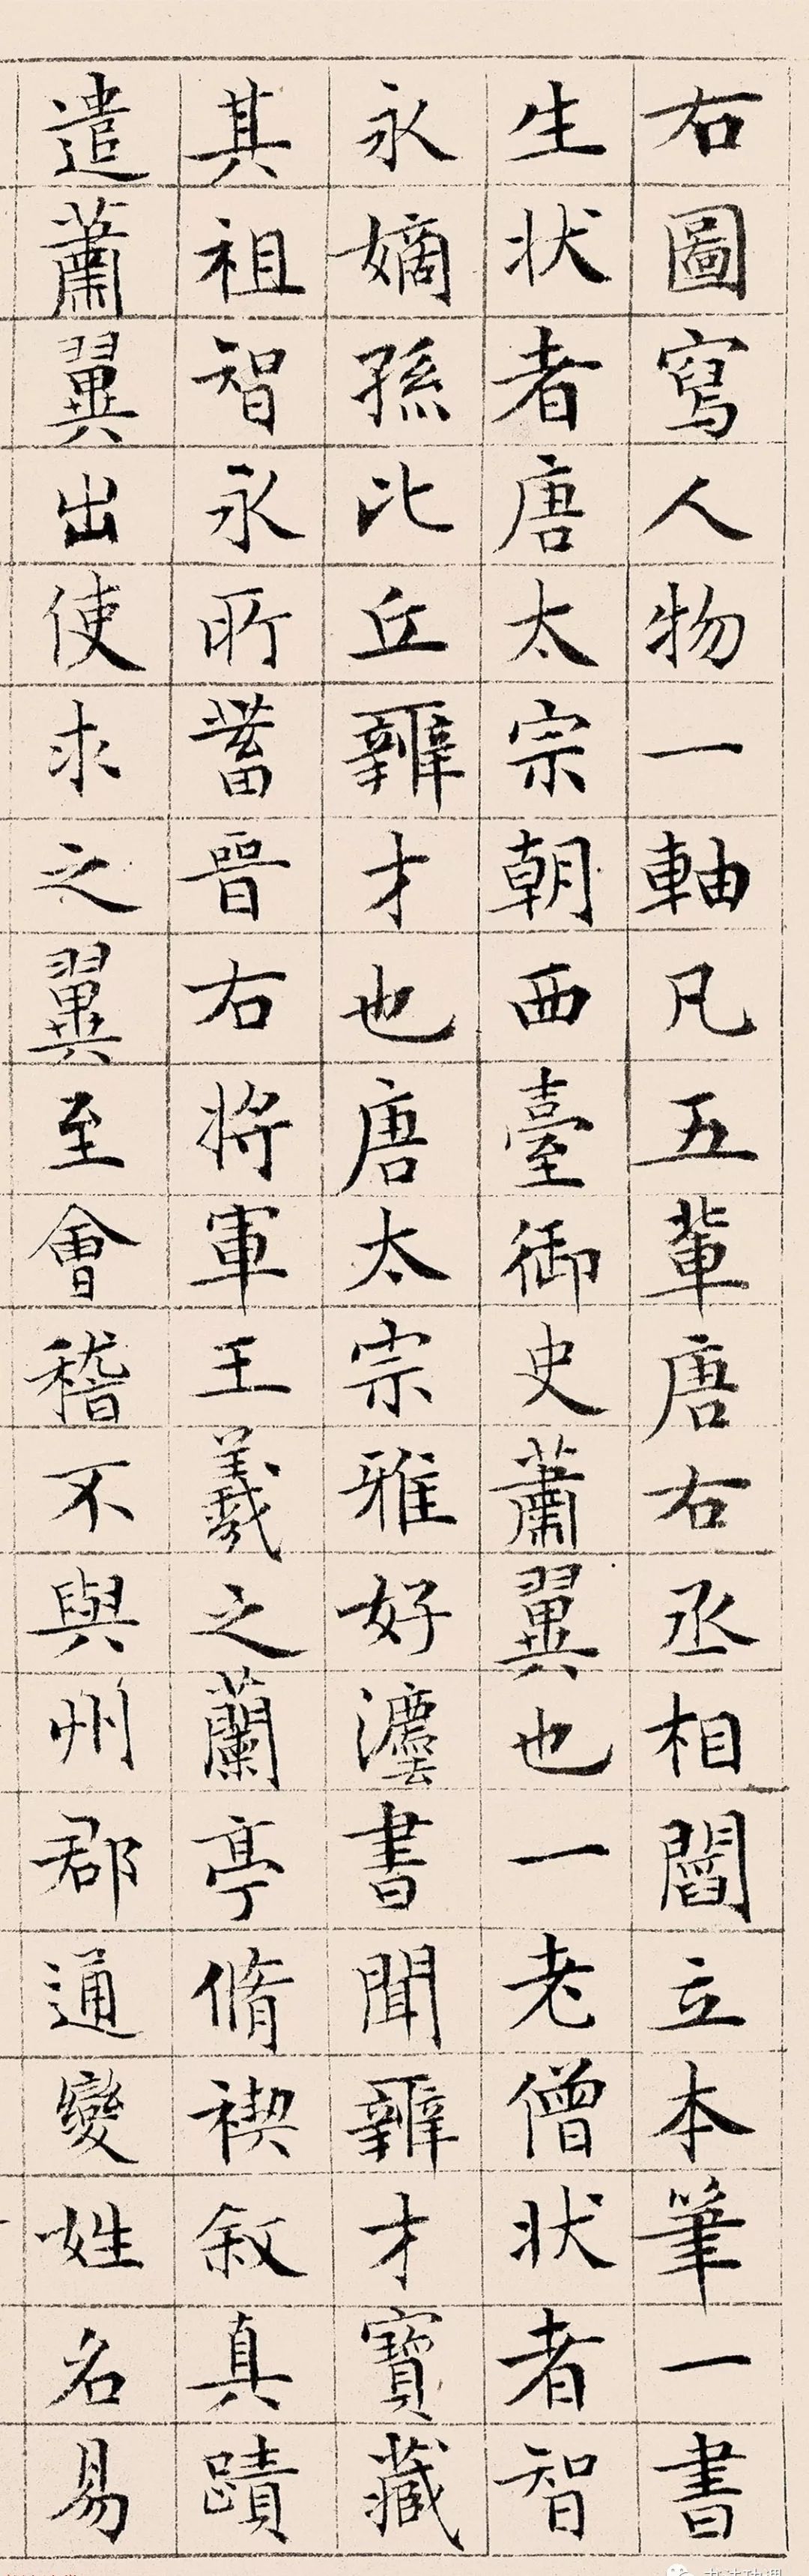 右圖寫人物一軸凡五輩唐右丞相閻立本筆一書
生狀者唐太宗朝西臺御史蕭翼也一老僧狀者智
永嫡孫比丘辯才也唐太宗雅好灋書聞辯才寶藏
其祖智永所蓄晉右將軍王羲之蘭亭脩禊敘真蹟
遣蕭翼出使求之翼至會稽不與州郡通變姓名易